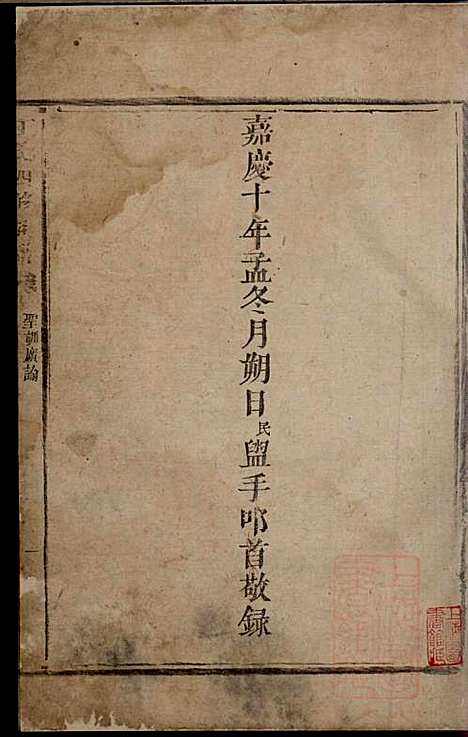 嘉慶十年孟冬月朔日民盥手叩首敬録
聖訓廣諭
一